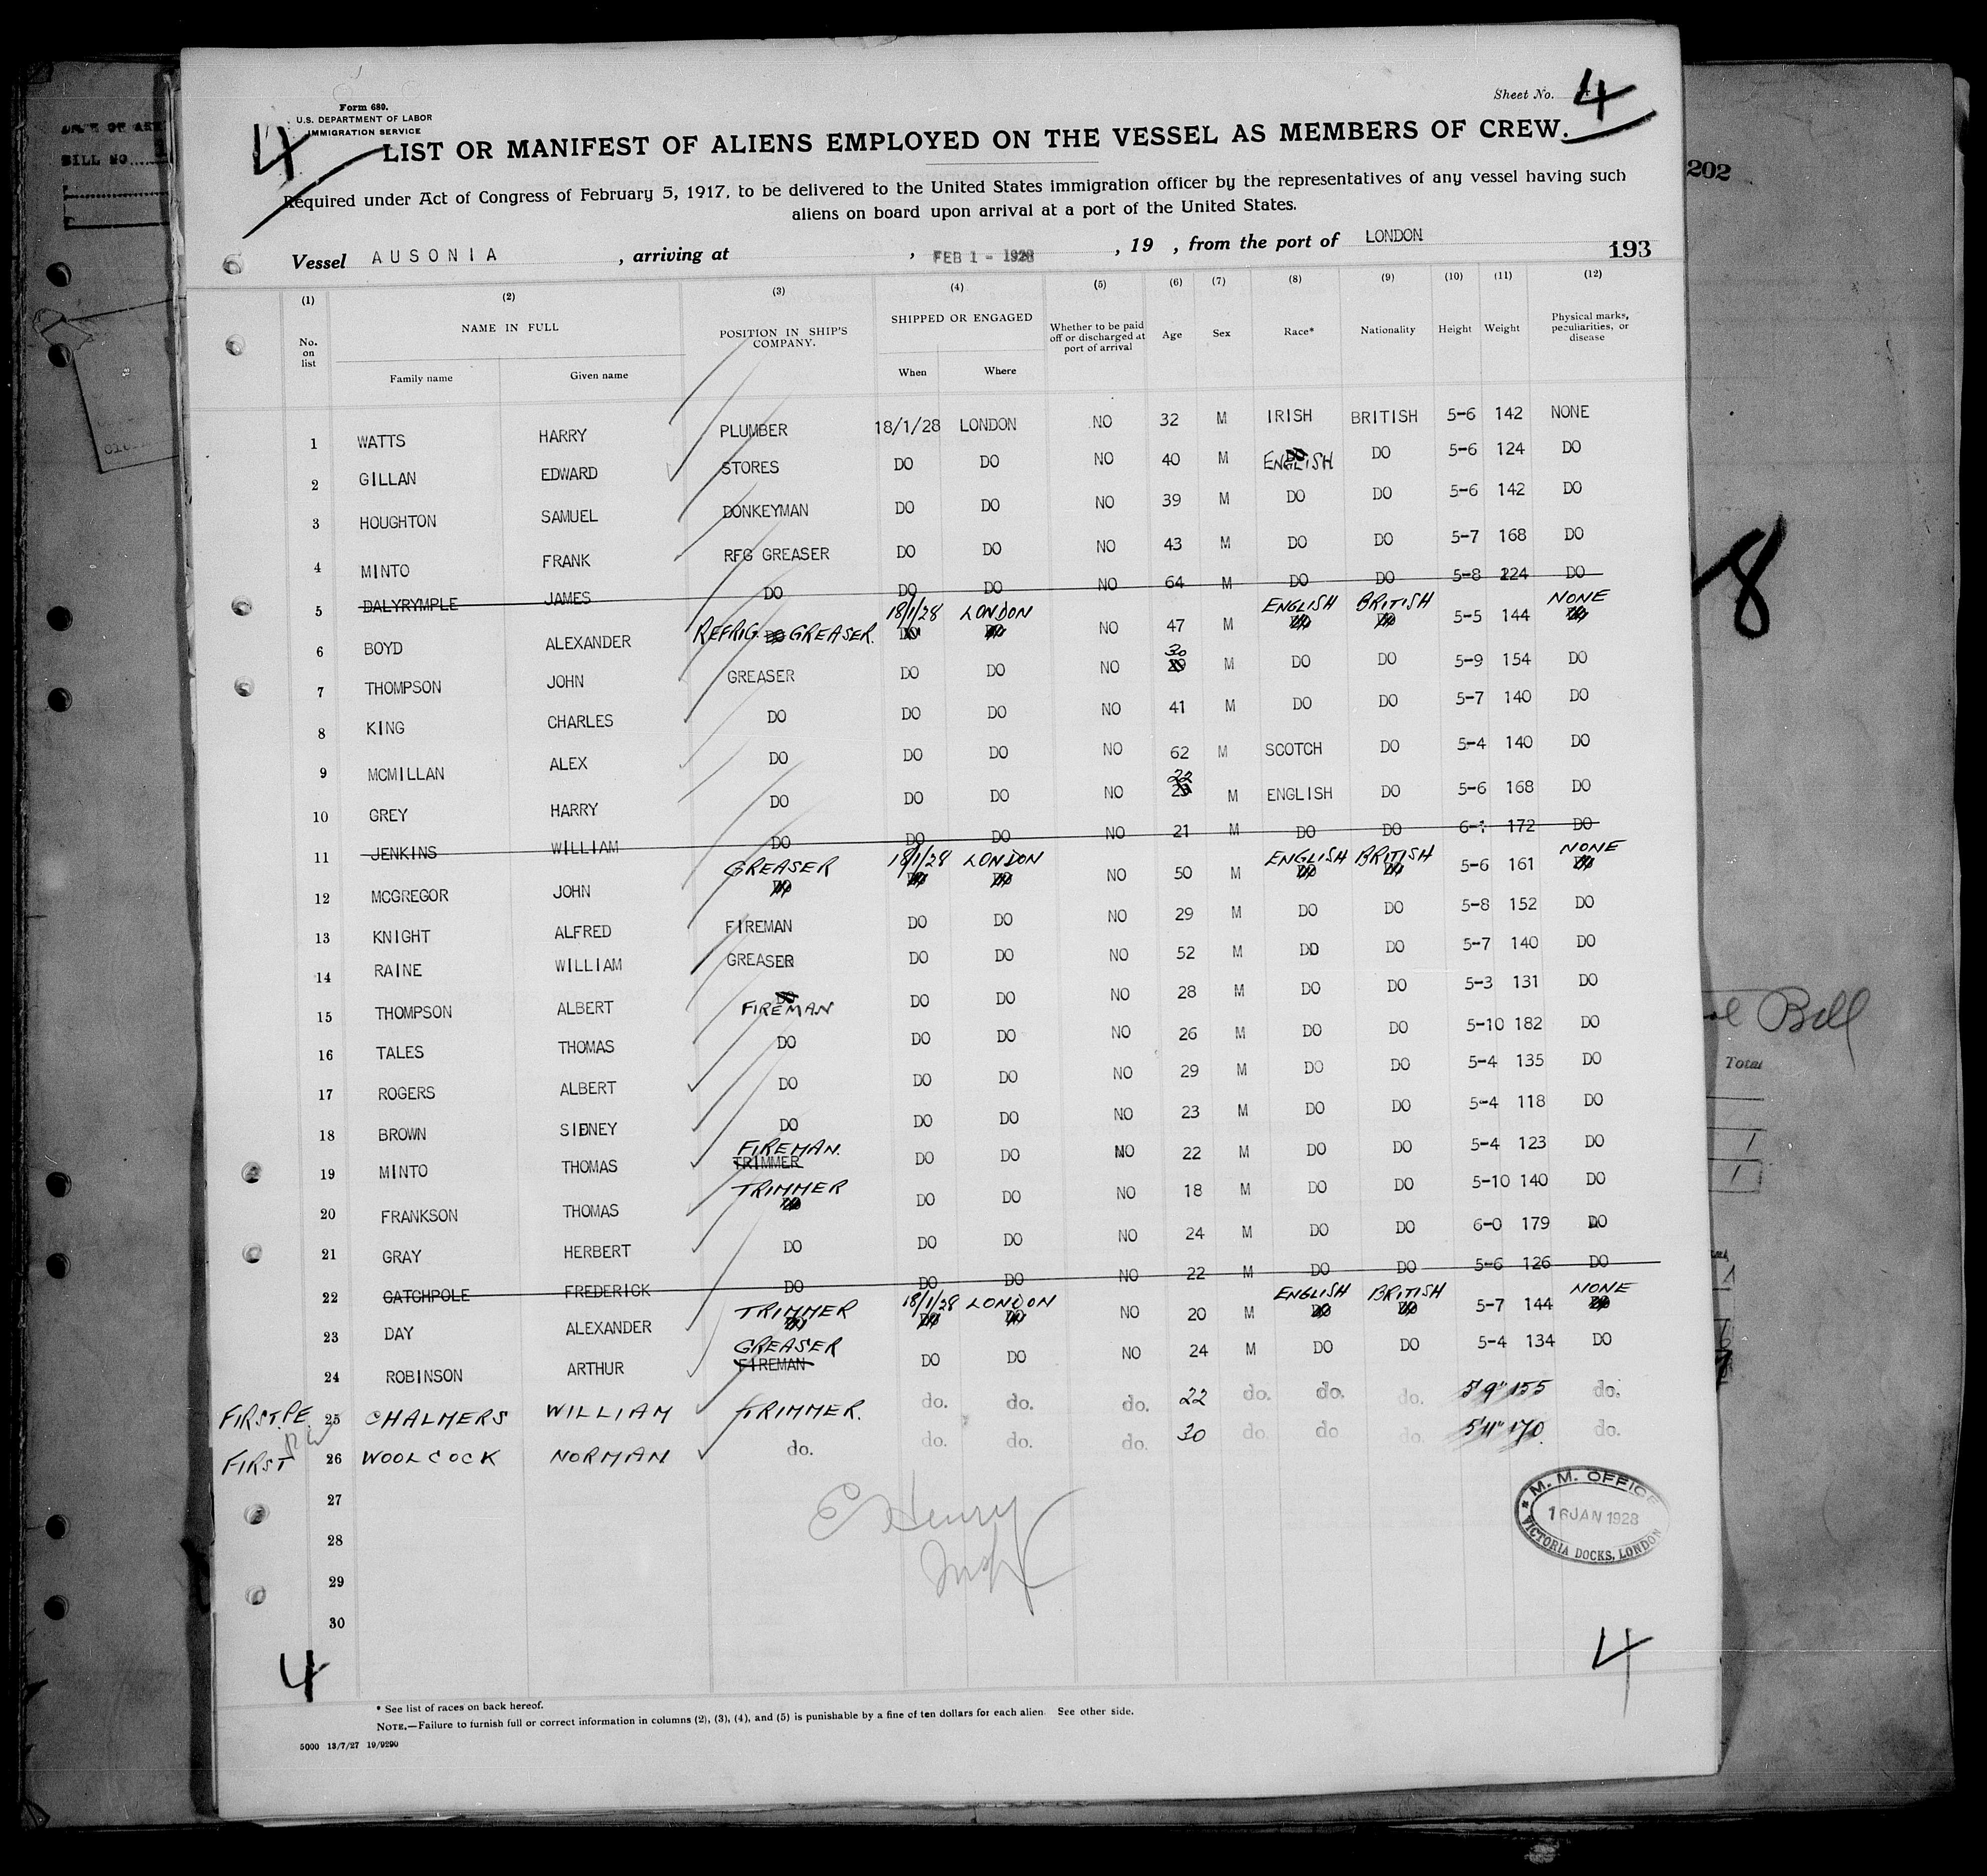 Form 680.
U.S. DEPARTMENT OF LABOR
IMMIGRATION SERVICE
Sheet No. 4
4
LIST OR MANIFEST OF ALIENS EMPLOYED ON THE VESSEL AS MEMBERS OF CREW.
Required under Act of Congress of February 5, 1917, to be delivered to the United States immigration officer by the representatives of any vessel having such
aliens on board upon arrival at a port of the United States.
Vessel AUSONIA, arriving at , FEB 1 - 1928, 19 , from the port of LONDON
193
(1) (2) (3) (4) (5) (6) (7) (8) (9) (10) (11) (12)
No. on list NAME IN FULL POSITION IN SHIP'S COMPANY. SHIPPED OR ENGAGED Whether to be paid off or discharged at port of arrival Age Sex Race* Nationality Height Weight Physical marks, peculiarities, or disease
Family name Given name When Where
1 WATTS HARRY PLUMBER 18/1/28 LONDON NO 32 M IRISH BRITISH 5-6 142 NONE
2 GILLAN EDWARD STORES DO DO NO 40 M DO ENGLISH DO 5-6 124 DO
3 HOUGHTON SAMUEL DONKEYMAN DO DO NO 39 M DO DO 5-6 142 DO
4 MINTO FRANK RFG GREASER DO DO NO 43 M DO DO 5-7 168 DO
5 DALYRYMPLE JAMES DO DO DO NO 64 M DO DO 5-8 224 DO
6 BOYD ALEXANDER REFRIG. GREASER. 18/1/28 LONDON NO 47 M ENGLISH BRITISH 5-5 144 NONE
7 THOMPSON JOHN GREASER DO DO NO 30 M DO DO 5-9 154 DO
8 KING CHARLES DO DO DO NO 41 M DO DO 5-7 140 DO
9 MCMILLAN ALEX DO DO DO NO 62 M SCOTCH DO 5-4 140 DO
10 GREY HARRY DO DO DO NO 22 M ENGLISH DO 5-6 168 DO
11 JENKINS WILLIAM DO DO DO NO 21 M DO DO 6-1 172 DO
12 MCGREGOR JOHN GREASER 18/1/28 LONDON NO 50 M ENGLISH BRITISH 5-6 161 NONE
13 KNIGHT ALFRED FIREMAN DO DO NO 29 M DO DO 5-8 152 DO
14 RAINE WILLIAM GREASER DO DO NO 52 M DO DO 5-7 140 DO
15 THOMPSON ALBERT DO FIREMAN DO DO NO 28 M DO DO 5-3 131 DO
16 TALES THOMAS DO DO DO NO 26 M DO DO 5-10 182 DO
17 ROGERS ALBERT DO DO DO NO 29 M DO DO 5-4 135 DO
18 BROWN SIDNEY DO DO DO NO 23 M DO DO 5-4 118 DO
19 MINTO THOMAS FIREMAN. TRIMMER DO DO NO 22 M DO DO 5-4 123 DO
20 FRANKSON THOMAS TRIMMER DO DO NO 18 M DO DO 5-10 140 DO
21 GRAY HERBERT DO DO DO NO 24 M DO DO 6-0 179 DO
22 CATCHPOLE FREDERICK DO DO DO NO 22 M DO DO 5-6 126 DO
23 DAY ALEXANDER TRIMMER 18/1/28 LONDON NO 20 M ENGLISH BRITISH 5-7 144 NONE
24 ROBINSON ARTHUR GREASER FIREMAN DO DO NO 24 M DO DO 5-4 134 DO
FIRST 25 CHALMERS WILLIAM TRIMMER. do. do. do. 22 do. do. do. 5'9" 155 do.
FIRST 26 WOOLCOCK NORMAN do. do. do. do. 30 do. do do. 5'11" 170. do.
27
28
29
30
E Henry
M. M. OFFICE
16 JAN 1928
VICTORIA DOCKS, LONDON
4
4
* See list of races on back hereof.
NOTE.—Failure to furnish full or correct information in columns (2), (3), (4), and (5) is punishable by a fine of ten dollars for each alien. See other side.
5000 13/7/27 19/9290
BILL NO
202
8
Bill
Total
1
1